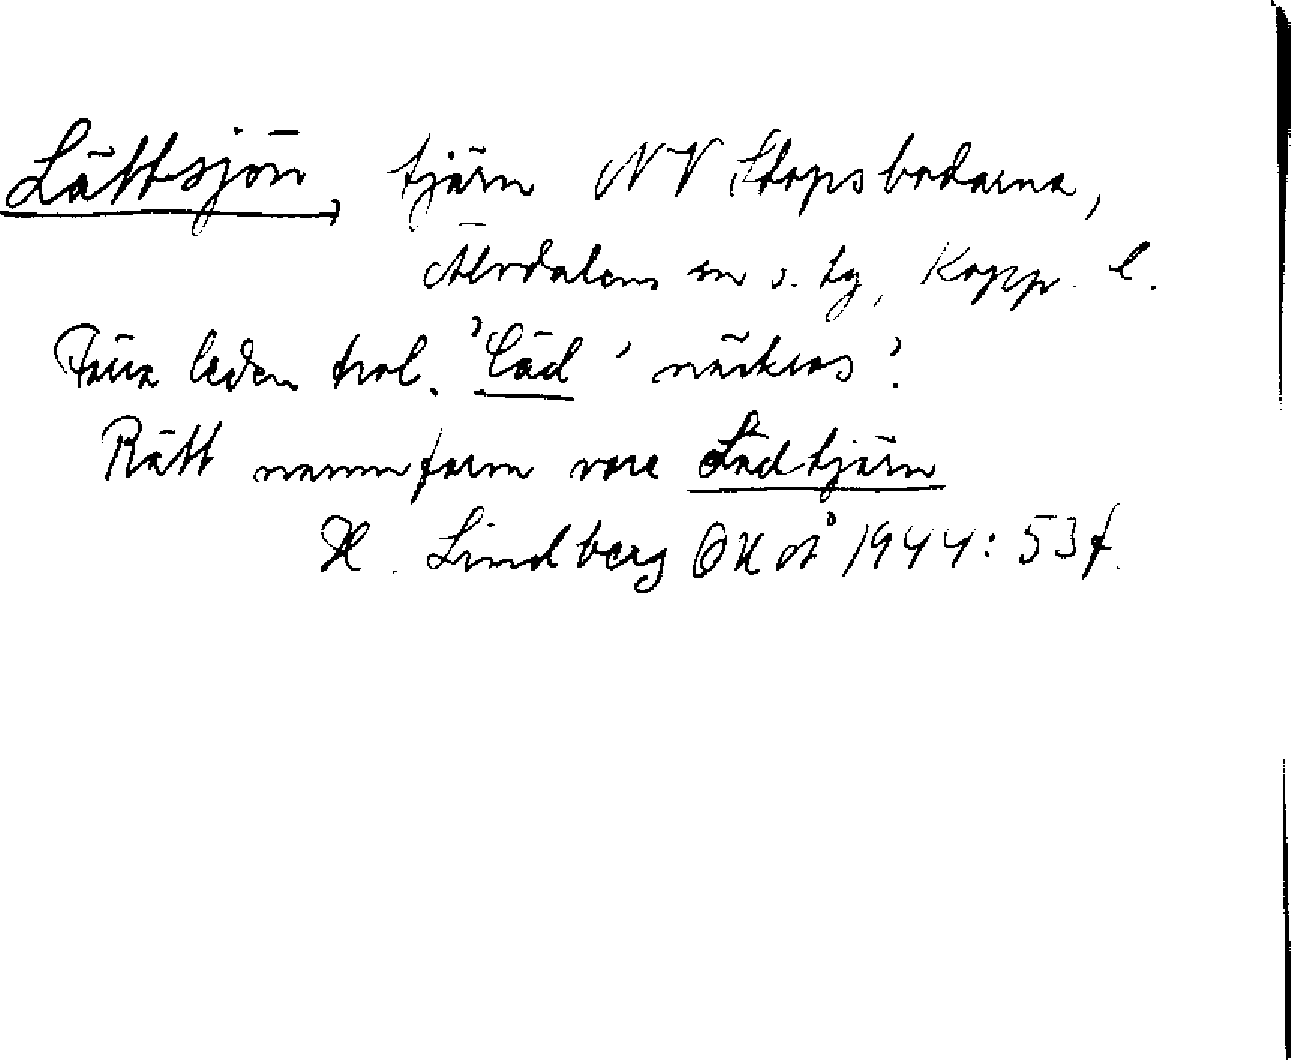 Lättsjön, tjärn NV Stopsbodarna,
Älvdalens sn o. tg, Kopp. l.
Förra leden trol. 'läd' näckros'.
Rätt namnform vore Lädtjärn
K. Lindberg OUÅ 1944: 53 f.